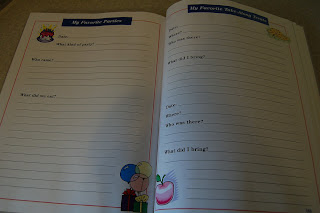 My Favorite Parties
Date:
What kind of party?
Who came?
What did we eat?
My Favorite Take-Along Treats
Date:
Where?
Who was there?
What did I bring?
Date:
Where?
Who was there?
What did I bring?